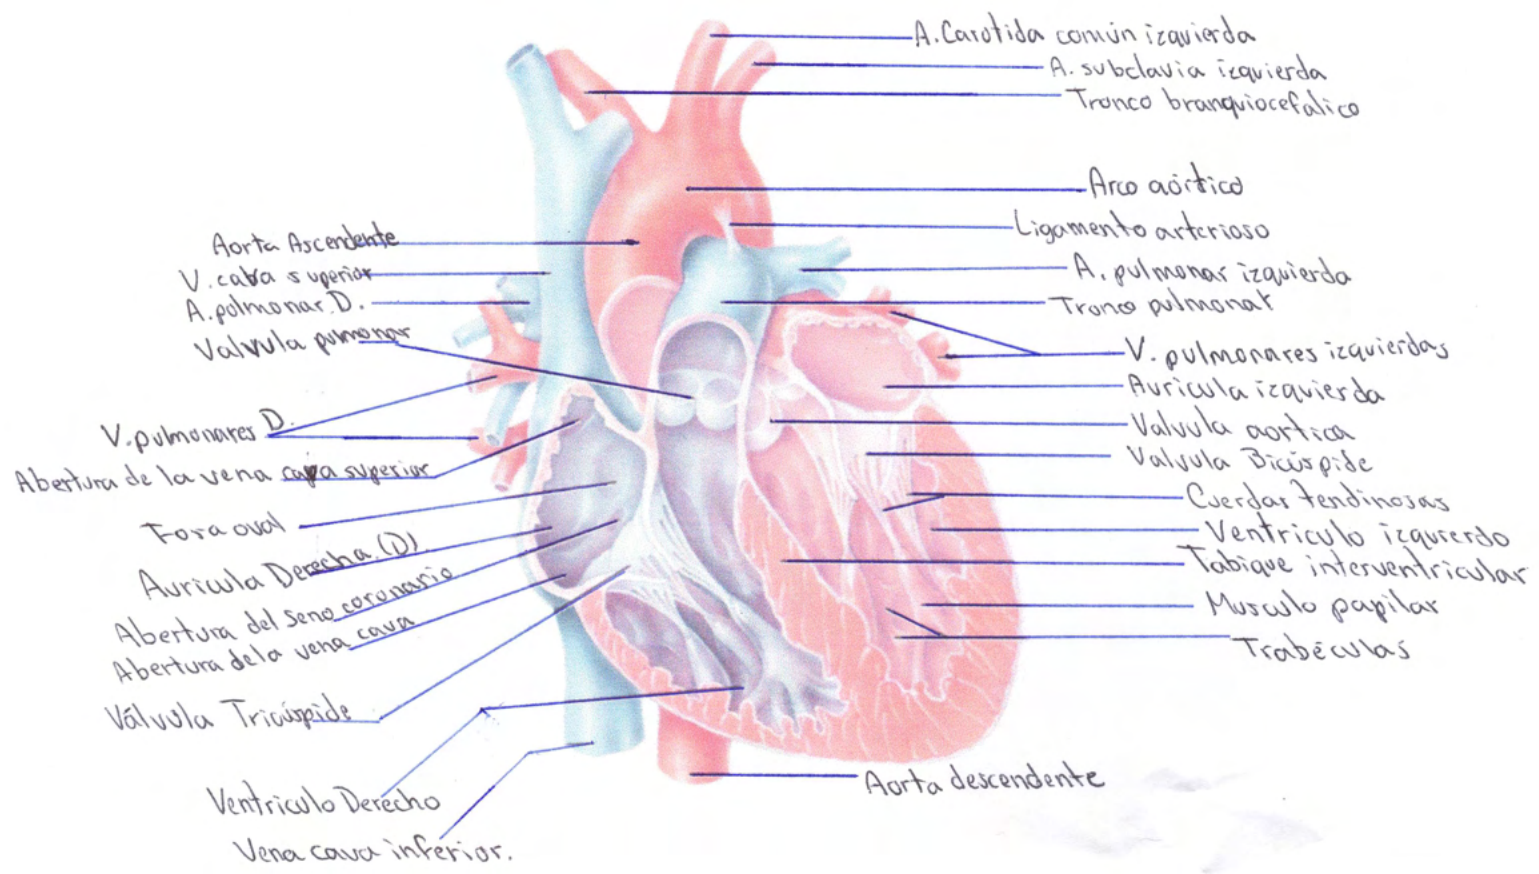 A. Carotida común izquierda
A. subclavia izquierda
Tronco branquiocefalico
Arco aórtico
Ligamento arterioso
A. pulmonar izquierda
Tronco pulmonar
V. pulmonares izquierdas
Auricula izquierda
Valvula aortica
Valvula Bicúspide
Cuerdas tendinosas
Ventriculo izquierdo
Tabique interventricular
Musculo papilar
Trabéculas
Aorta descendente
Aorta Ascendente
V. caba superior
A. polmonar. D.
Valvula pulmonar
V. pulmonares D.
Abertura de la vena cava superior
Fosa oval
Auricula Derecha. (D)
Abertura del seno coronario
Abertura dela vena cava
Válvula Tricúspide
Ventriculo Derecho
Vena cava inferior.